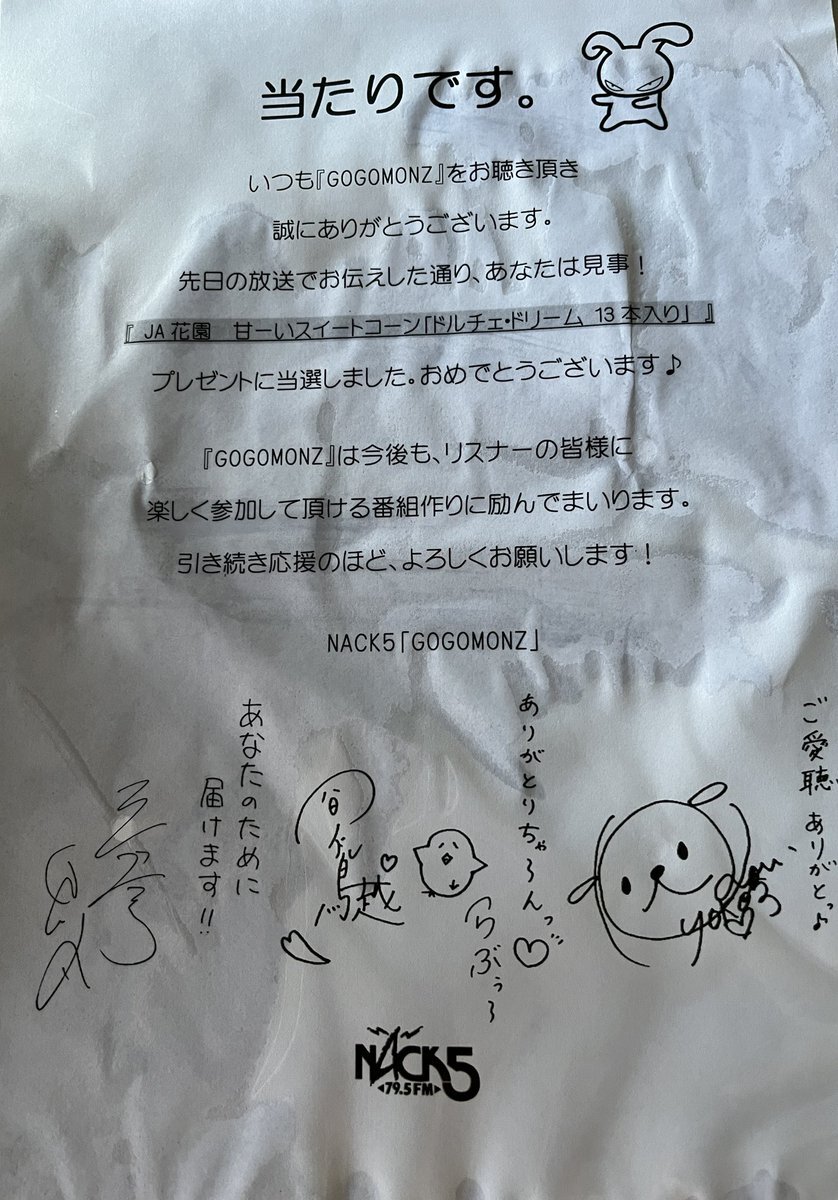 当たりです。
いつも『GOGOMONZ』をお聴き頂き
誠にありがとうございます。
先日の放送でお伝えした通り、あなたは見事！
『 JA花園　甘ーいスイートコーン「ドルチェ・ドリーム 13本入り」 』
プレゼントに当選しました。おめでとうございます♪
『GOGOMONZ』は今後も、リスナーの皆様に
楽しく参加して頂ける番組作りに励んでまいります。
引き続き応援のほど、よろしくお願いします！
NACK5「GOGOMONZ」
ご愛聴
ありがとっ♪
ありがとりちゃ〜んっ♡
らぶぅ〜
馬越
あなたのために
届けます!!
NACK5
79.5FM